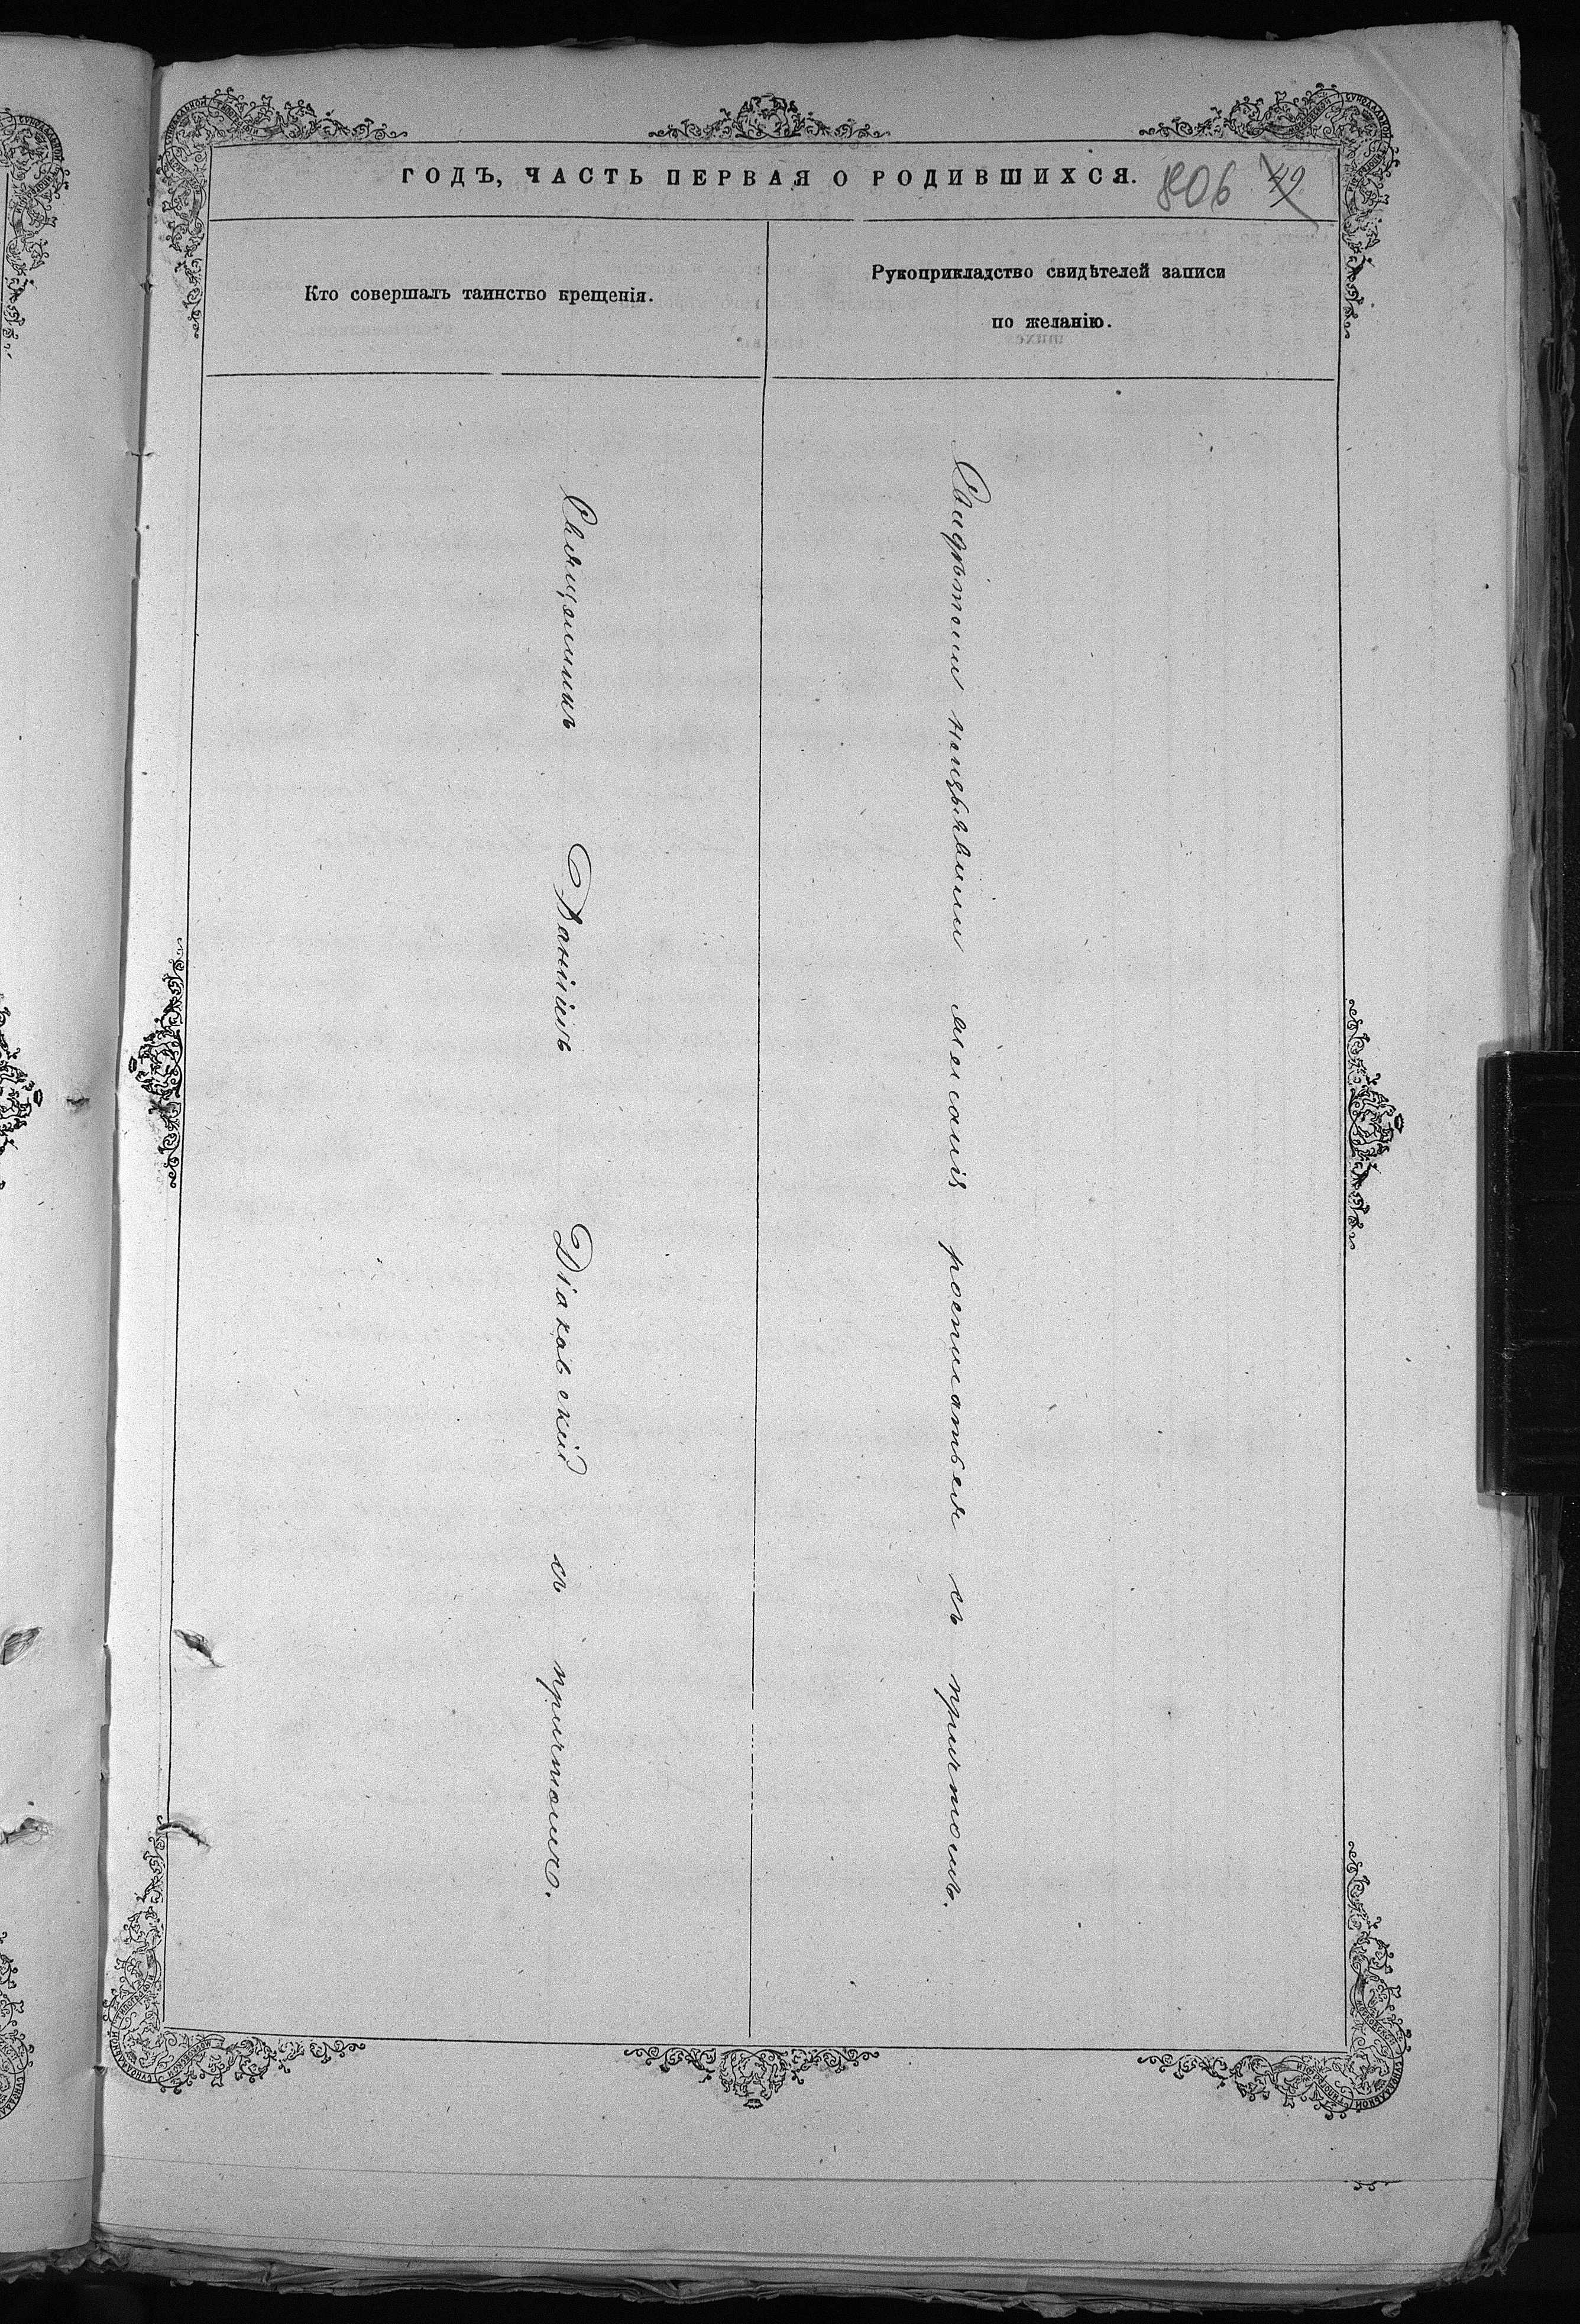 ГОДЪ, ЧАСТЬ ПЕРВАЯ О РОДИВШИХСЯ.
806 49
Кто совершалъ таинство крещенія.
Рукоприкладство свидѣтелей записи
по желанію.
Священникъ Даніилъ Діаковскій съ причтомъ.
Свидѣтели неизъявили желанія росписаться съ причтомъ.